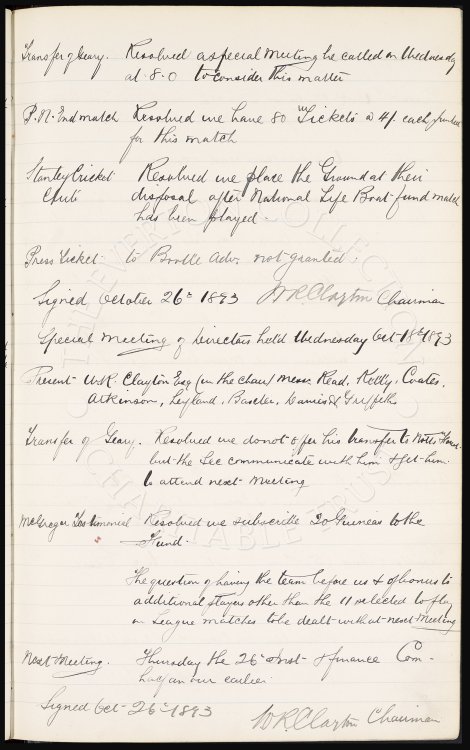 Transfer of Geary. Resolved a special Meeting be called on Wednesday
at 8.0 to consider this matter
P.N. End match Resolved we have 80 Tickets @ 4/- each printed
for this match
Stanley Cricket Resolved we place the Ground at their
Club disposal after National Life Boat fund match
has been played.
Press Ticket to Bootle Adv. not granted.
Signed, October 26th 1893 W R Clayton Chairman
Special Meeting of Directors held Wednesday Oct 18th 1893
Present W.R. Clayton Esq (in the chair) Messrs Read, Kelly, Coates,
Atkinson, Leyland, Baxter, Davies & Griffiths
Transfer of Geary. Resolved we do not offer his transfer to Notts
but the Sec communicate with him & get him
to attend next Meeting
McGregor Testimonial Resolved we subscribe 20 Guineas to the
Fund.
The question of having the team before us & of bonus to
additional players other than the 11 selected to play
in League matches to be dealt with at next Meeting
Next Meeting. Thursday the 26th inst & finance Com-
half an hour earlier.
Signed Oct 26th 1893 W R Clayton Chairman
THE EVERTON COLLECTION
CHARITABLE TRUST